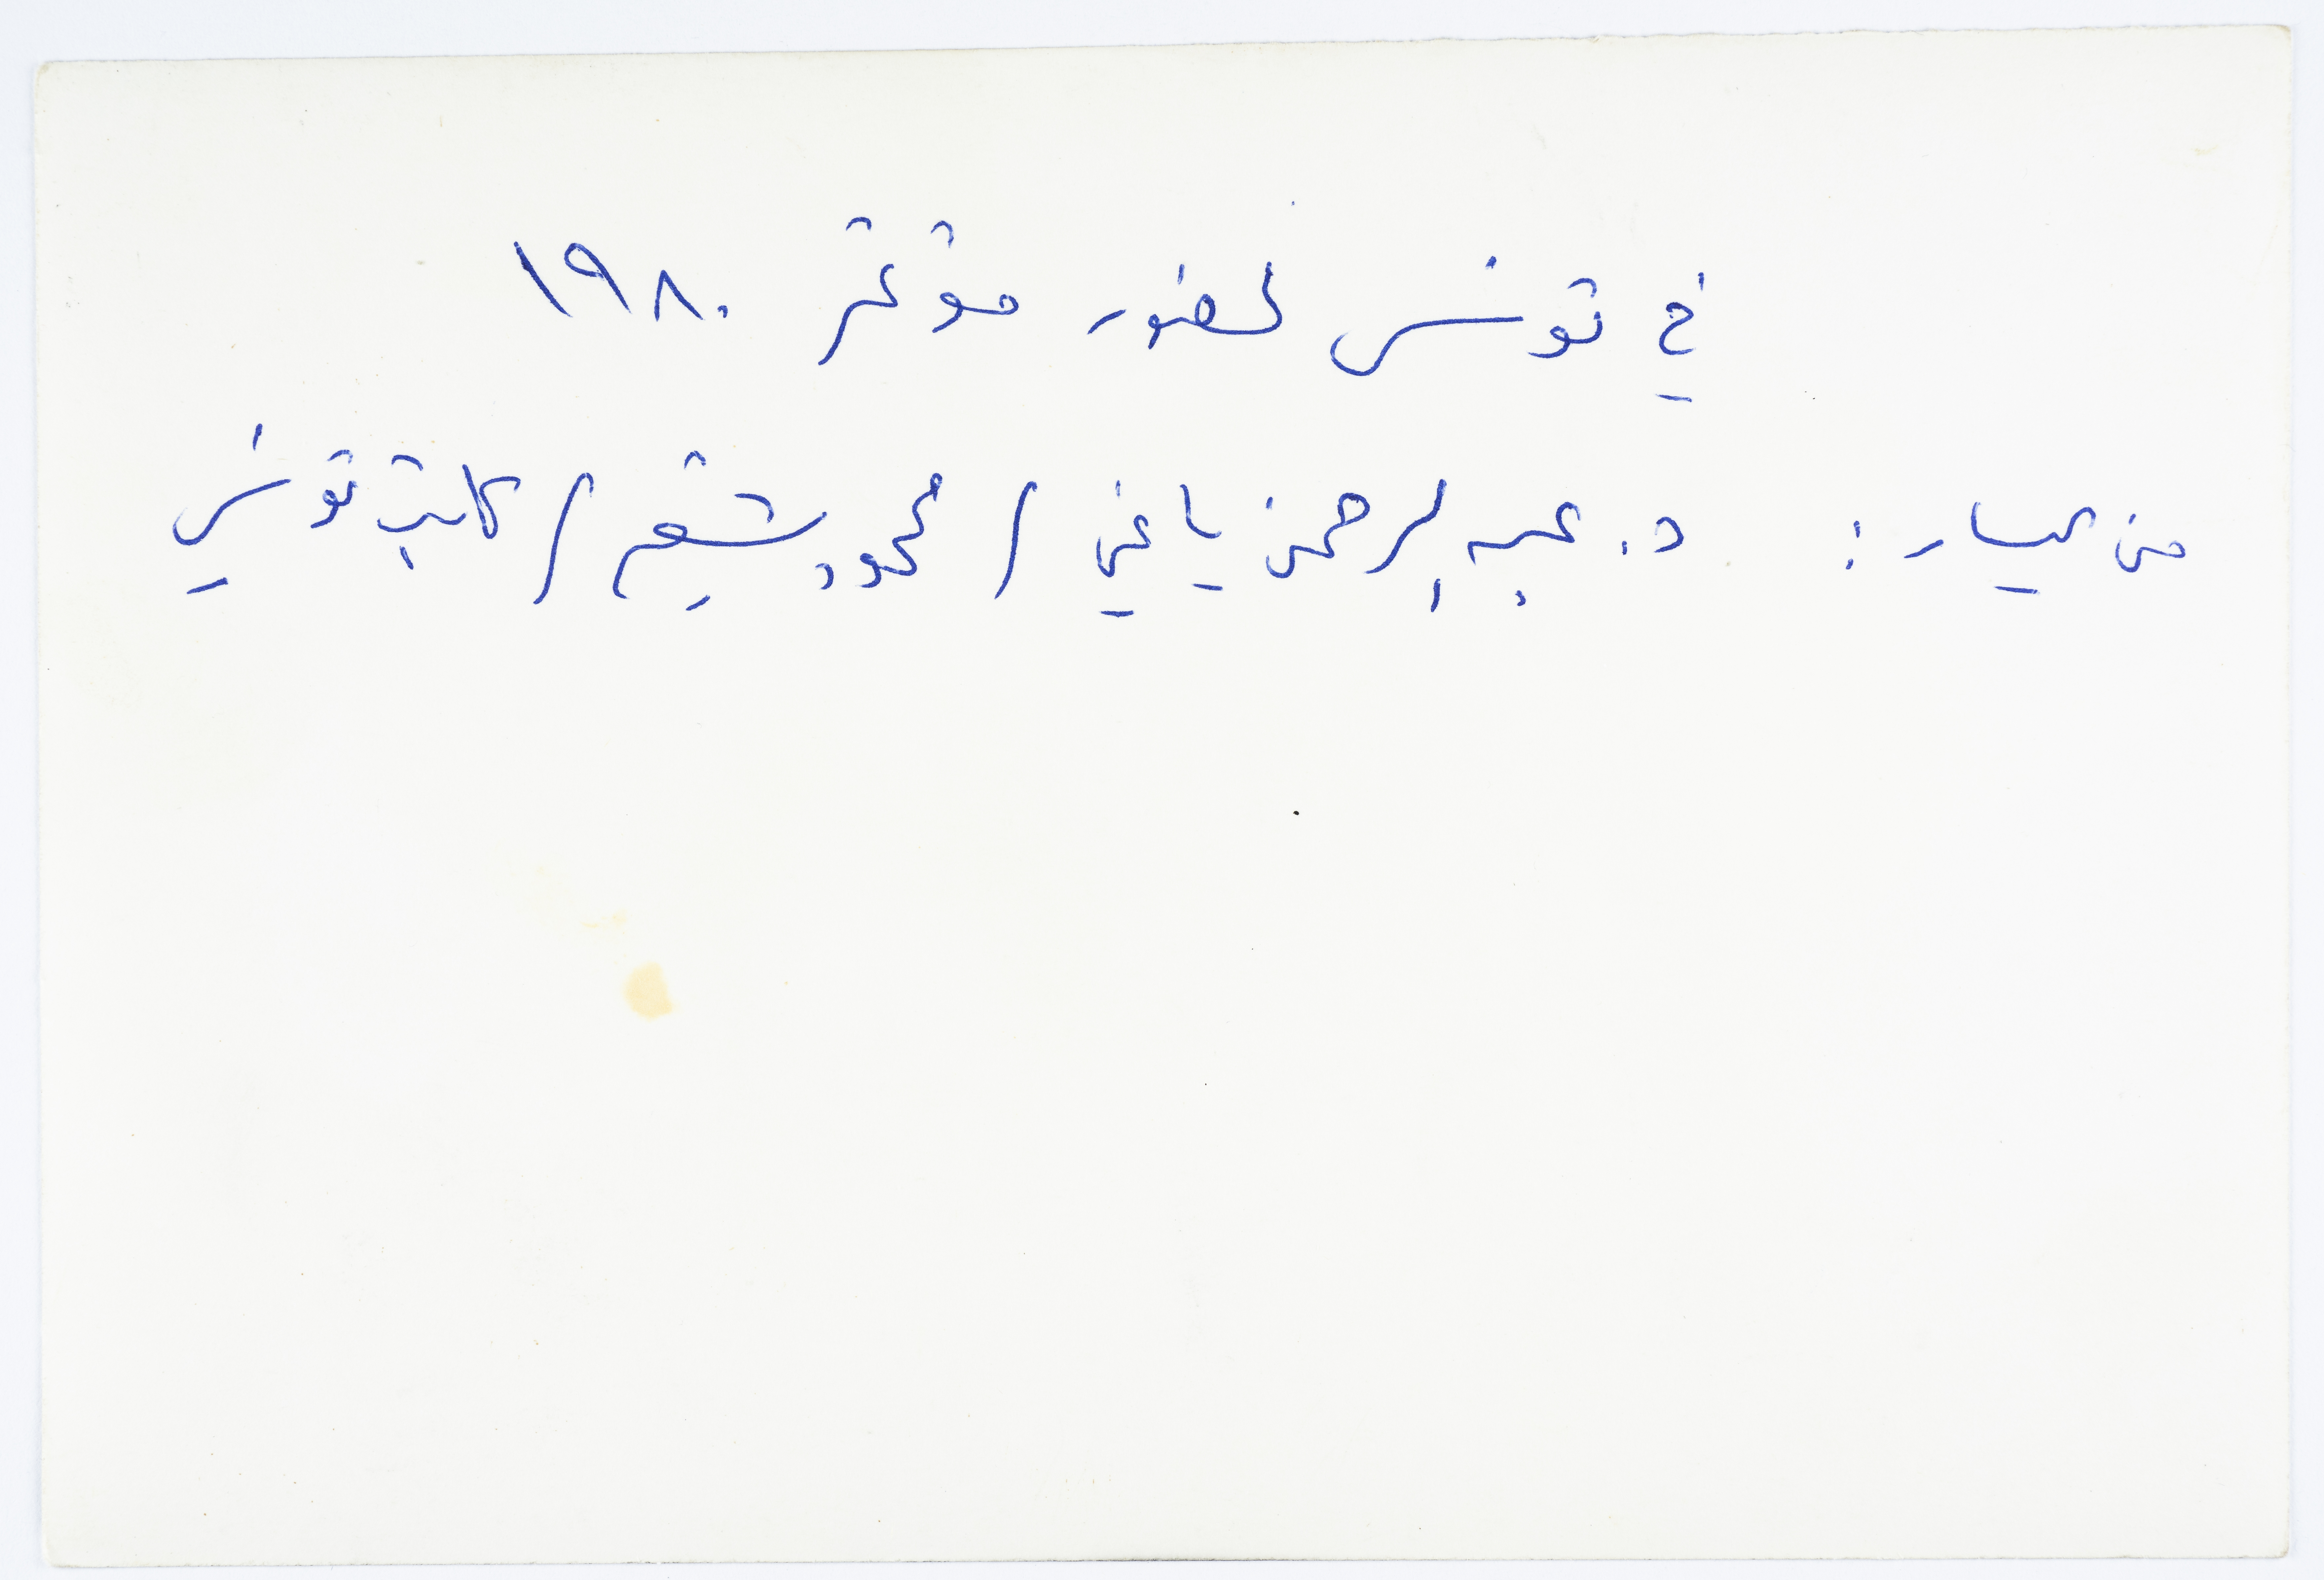 في تونس لحضور مؤتمر ١٩٨٠
من اليسار : د. عبد الرحمن ياغي / محمود شقير / كاتب تونسي